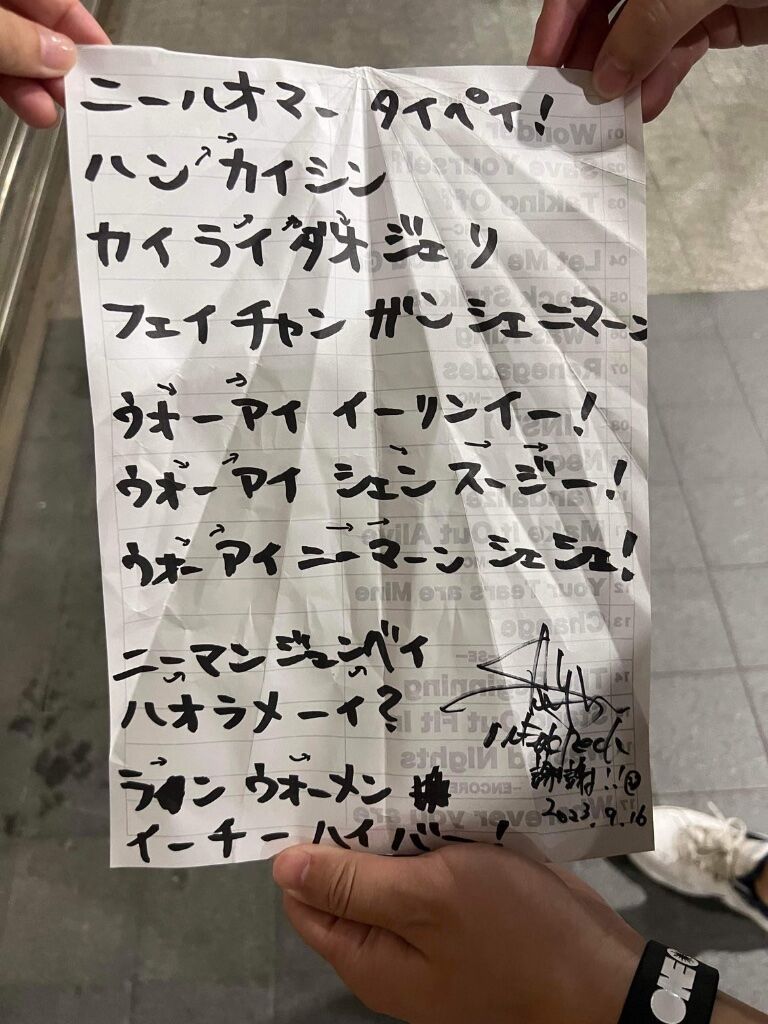 ニーハオマー タイペイ!
ハン カイシン
カイ ライ ダオ ジェリ
フェイチャン ガン シェ ニマーン
ウォーアイ イーリンイー!
ウォーアイ シェン スージー!
ウォーアイ ニーマーン シェシェ!
ニーマン ジュンベイ
ハオラメーイ?
ラ ン ウォーメン
イーチー ハイバー!
謝謝!!
2023.9.16
01 Wonder
02 Save Yourself
03 Taking Off
04 Let Me Let You
05 Clock Strikes
06 I was King
07 Renegades
08
Vandalize
Make It Out Alive
12 Your Tears are Mine
13 Change
-SE-
14 The Beginning
Out Fit In
Nights
-ENCORE
17 Wherever you are